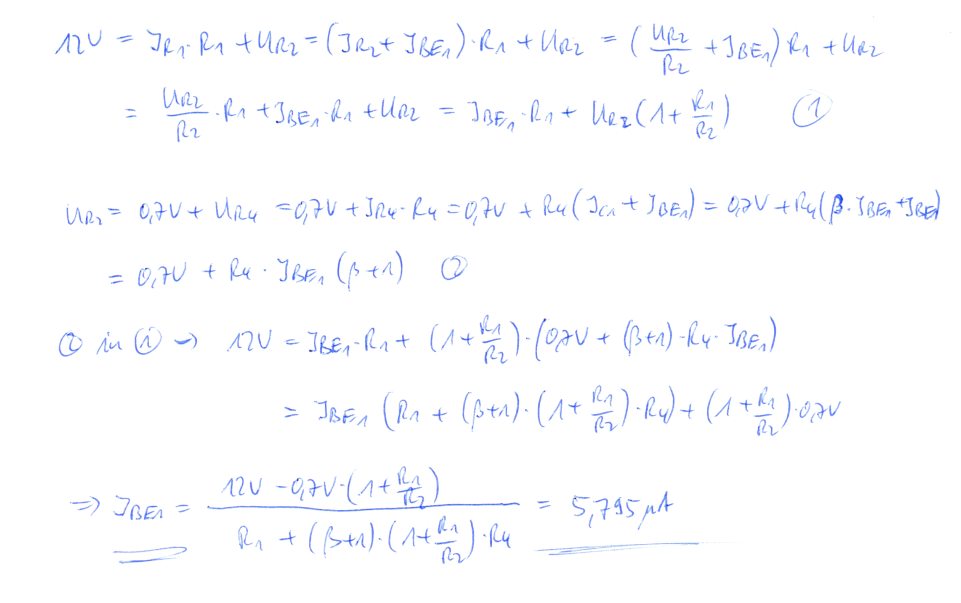 12V = I_R1·R1 + U_R2 = (I_R2 + I_BE1)·R1 + U_R2 = (U_R2/R2 + I_BE1) R1 + U_R2
= U_R2/R2 · R1 + I_BE1·R1 + U_R2 = I_BE1·R1 + U_R2(1 + R1/R2) ①
U_R2 = 0,7V + U_R4 = 0,7V + I_R4·R4 = 0,7V + R4(I_C1 + I_BE1) = 0,7V + R4(β·I_BE1 + I_BE1)
= 0,7V + R4 · I_BE1 (β+1) ②
② in ① → 12V = I_BE1·R1 + (1 + R1/R2)·(0,7V + (β+1)·R4·I_BE1)
= I_BE1 (R1 + (β+1)·(1 + R1/R2)·R4) + (1 + R1/R2)·0,7V
⇒ I_BE1 = (12V - 0,7V·(1 + R1/R2))/(R1 + (β+1)·(1 + R1/R2)·R4) = 5,795 µA